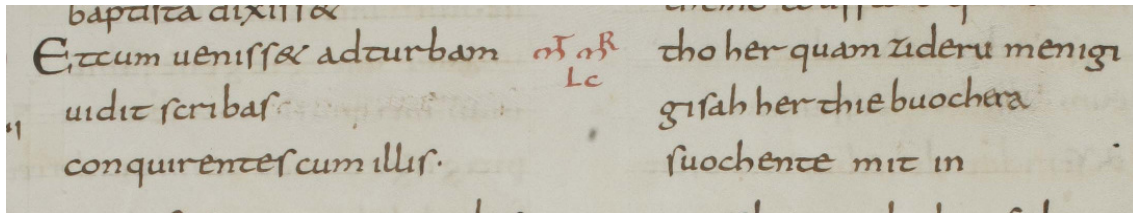 baptista dixiss&
Etcum ueniss& adturbam
uidit scribas
conquirentes cum illis·
mT mR
Lc
tho her quam zideru menigi
gisah her thie buochera
suochente mit in